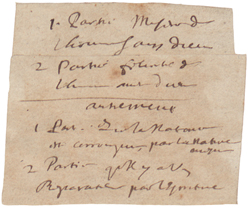 1. Partie Misere de
l'homme sans dieu
2 Partie felicité de
l'homme avec dieu
autrement
1 Part. Que la Nature
est corrompue par la Nature
mesme
2 Partie qu'il y a un
Reparateur par l'Escriture